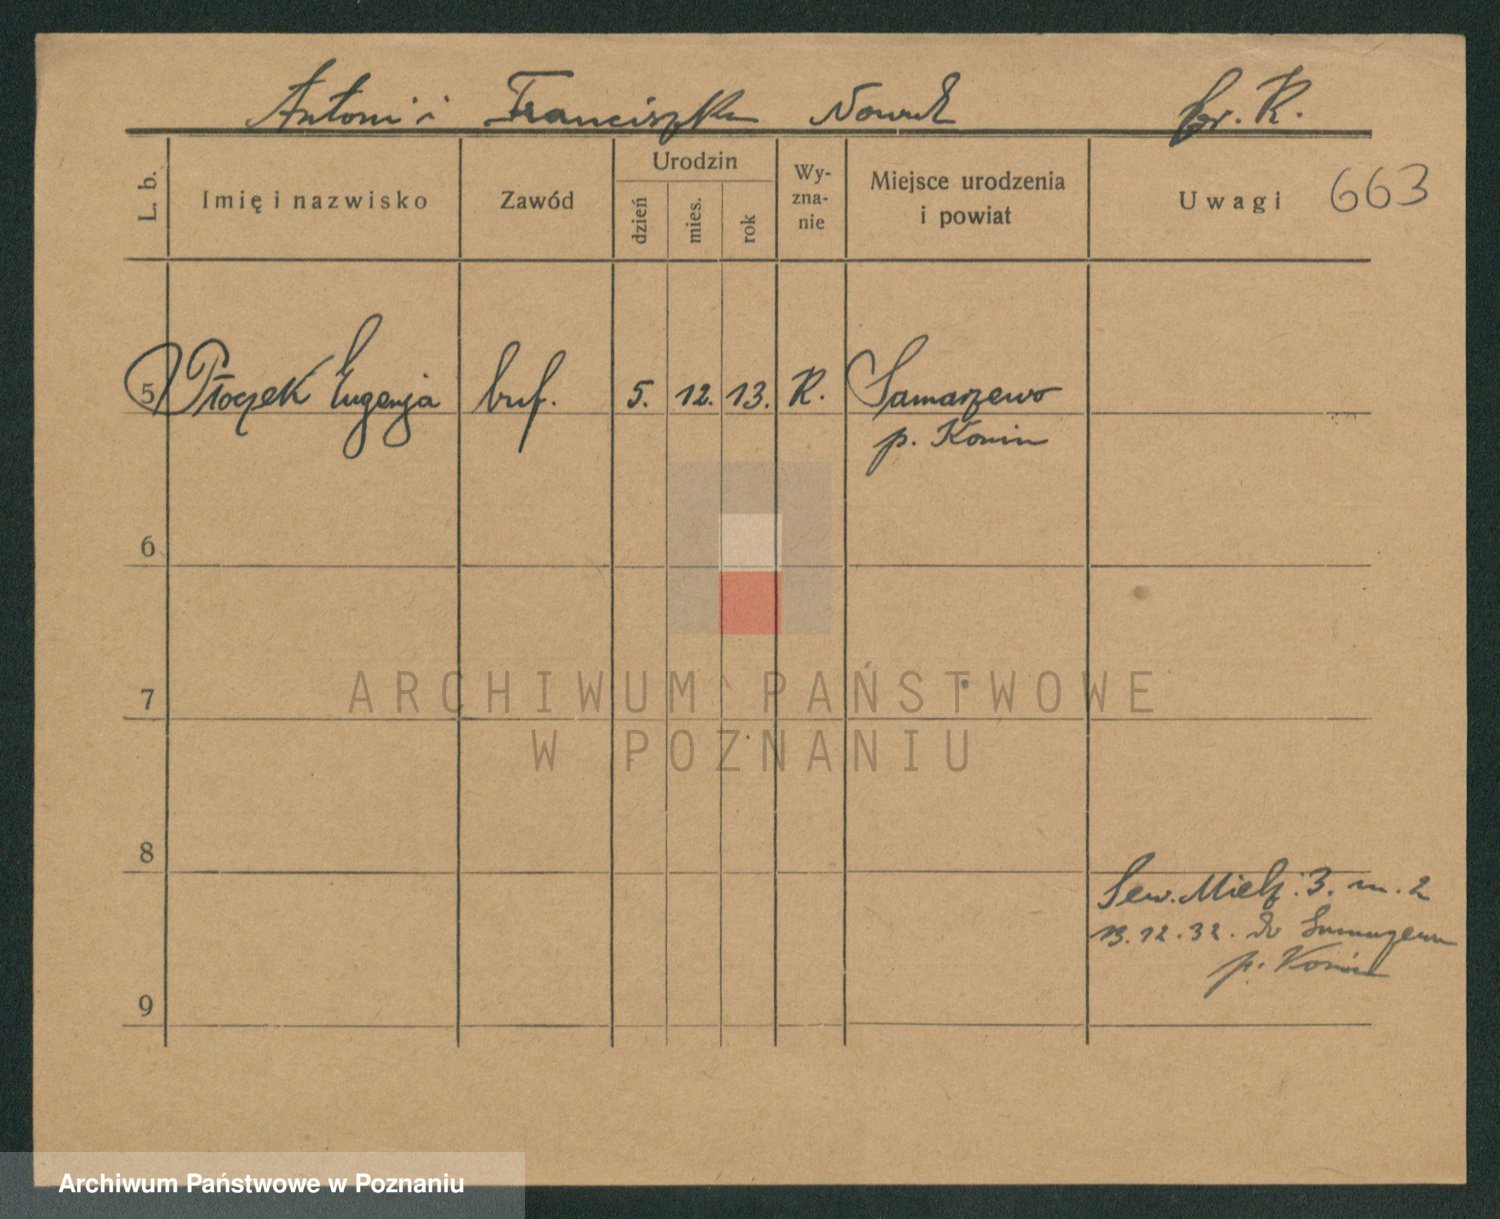 Antoni i Franciszka Nowak br. R.
L. b. Imię i nazwisko Zawód Urodzin dzień mies. rok Wy-zna-nie Miejsce urodzenia i powiat Uwagi 663
5 Płoczek Eugenja buf. 5. 12. 13. R. Samarzewo
p. Konin
6
7
ARCHIWUM PAŃSTWOWE
W POZNANIU
8
Sew. Mielż. 3. m. 2
13.12.32. do Samarzewa
p. Konin
9
Archiwum Państwowe w Poznaniu